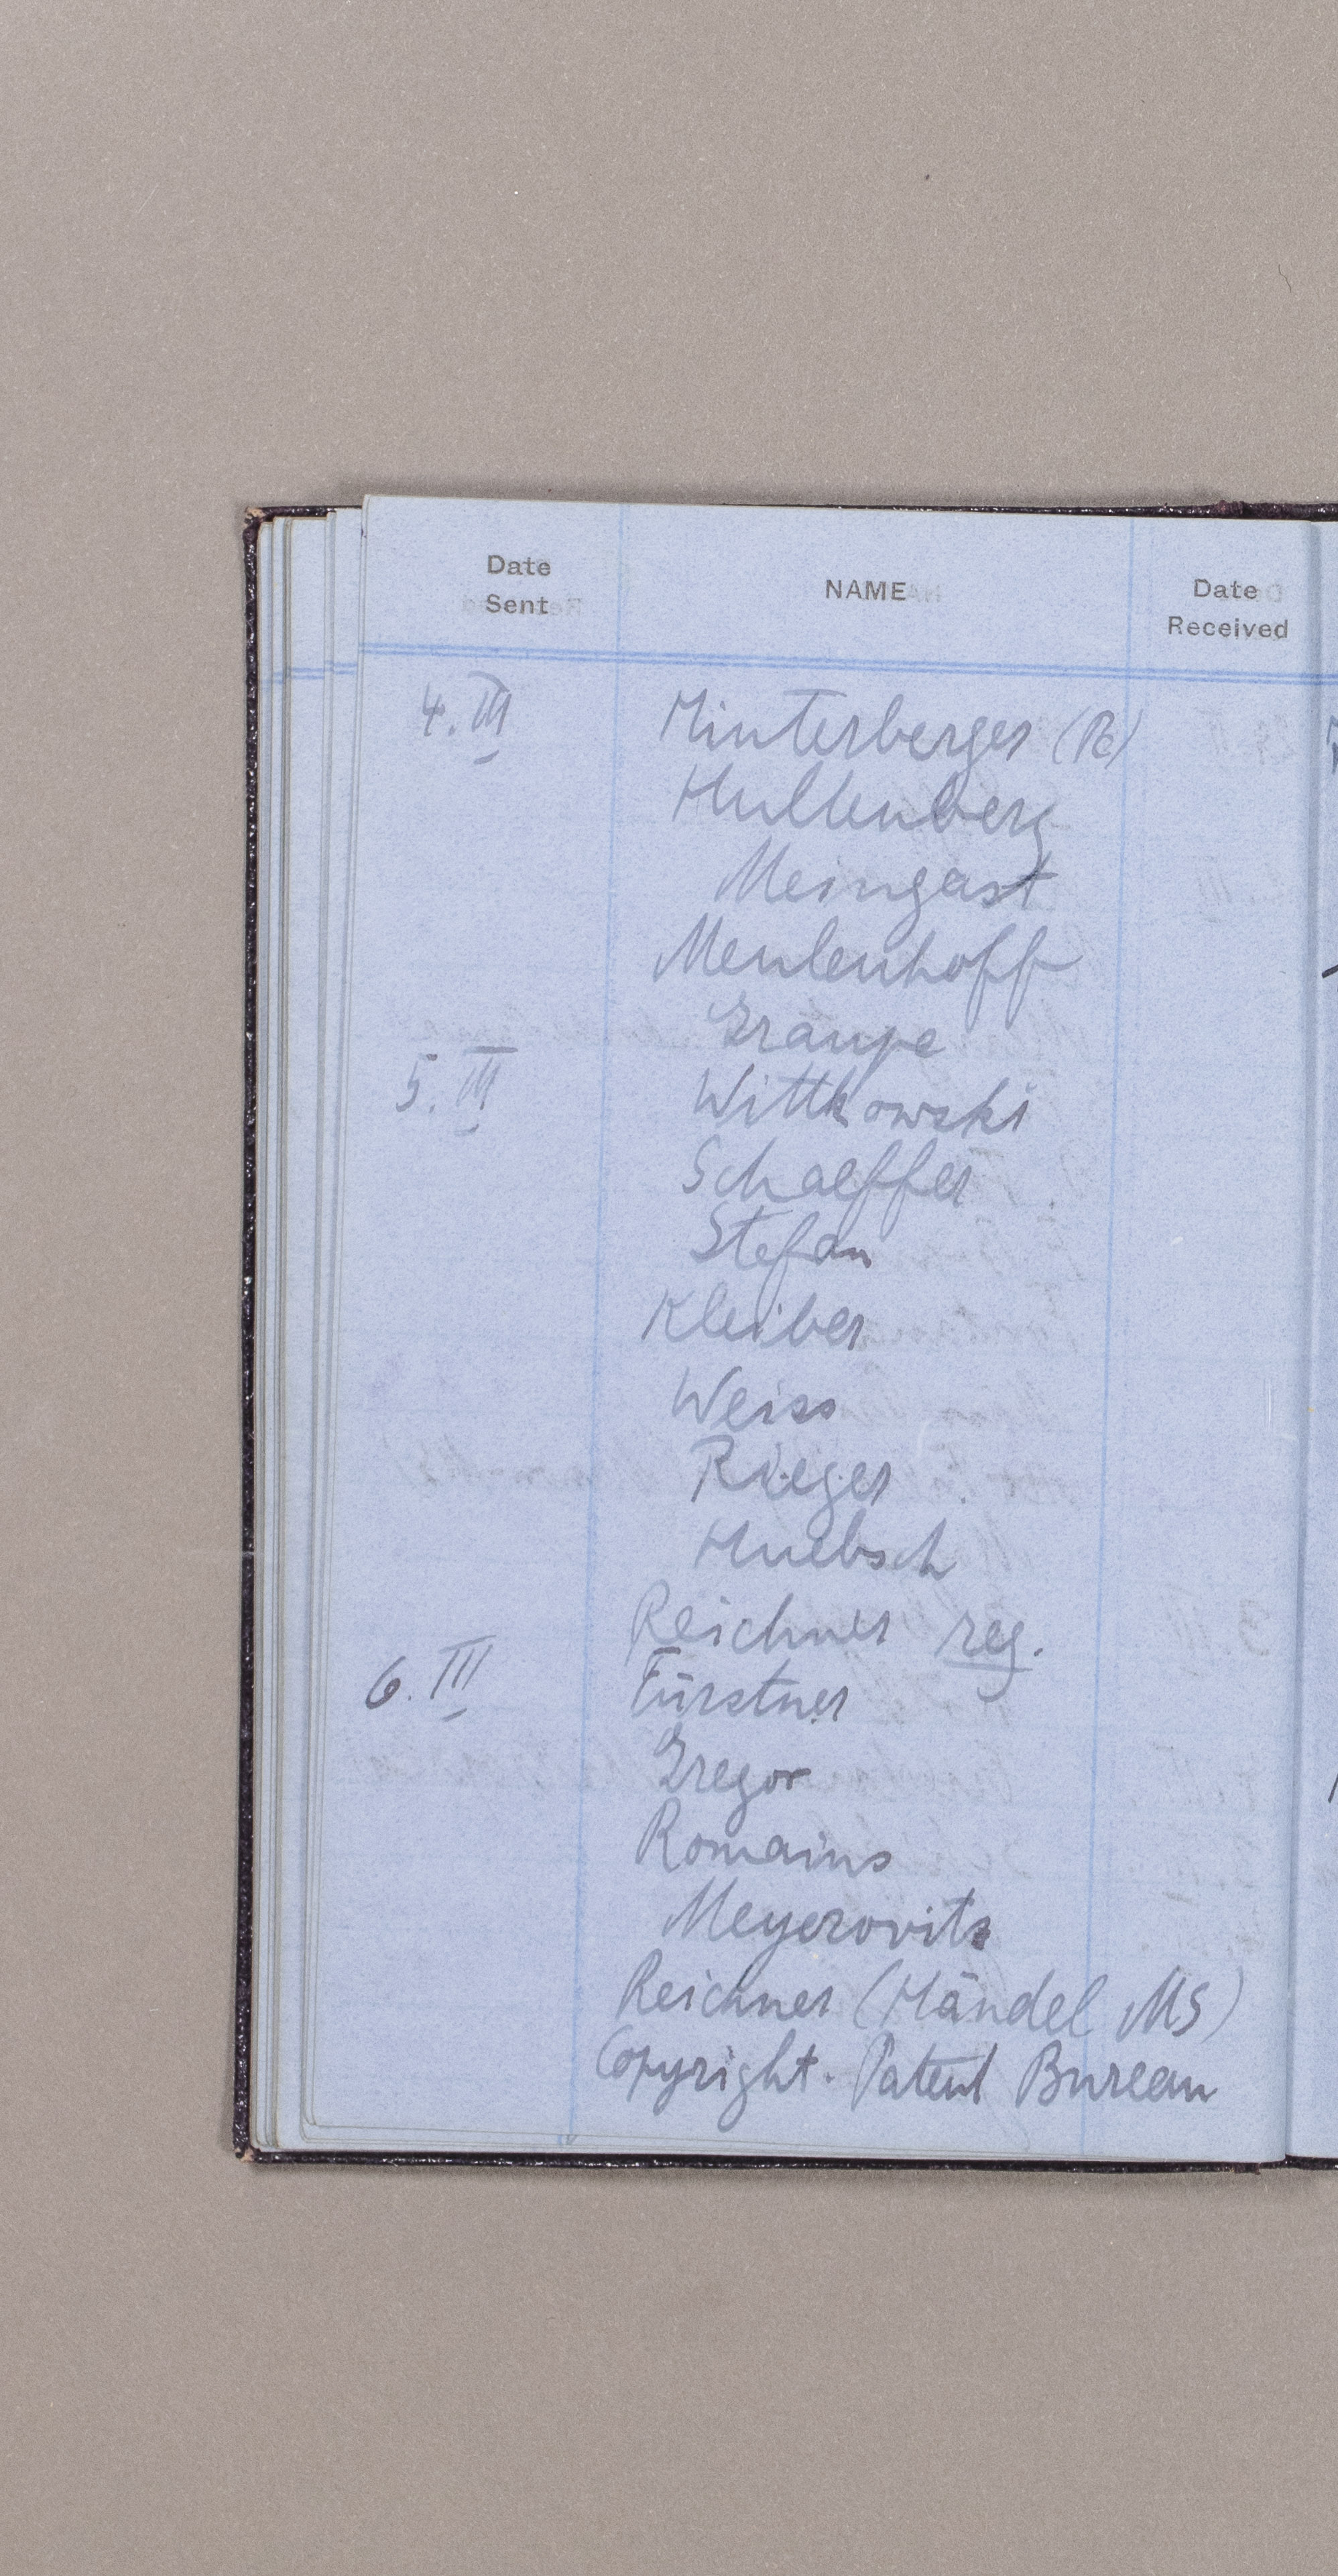 Date Sent NAME Date Received
4. III Hinterberger (R)
Hullenberg
Meingast
Meulenhoff
Graupe
5. III Wittkowski
Schaeffer
Stefan
Kleiber
Weiss
Rieger
Huebsch
Reichner reg.
6. III Fürstner
Gregor
Romains
Meyerovits
Reichner (Händel MS)
Copyright. Patent Bureau